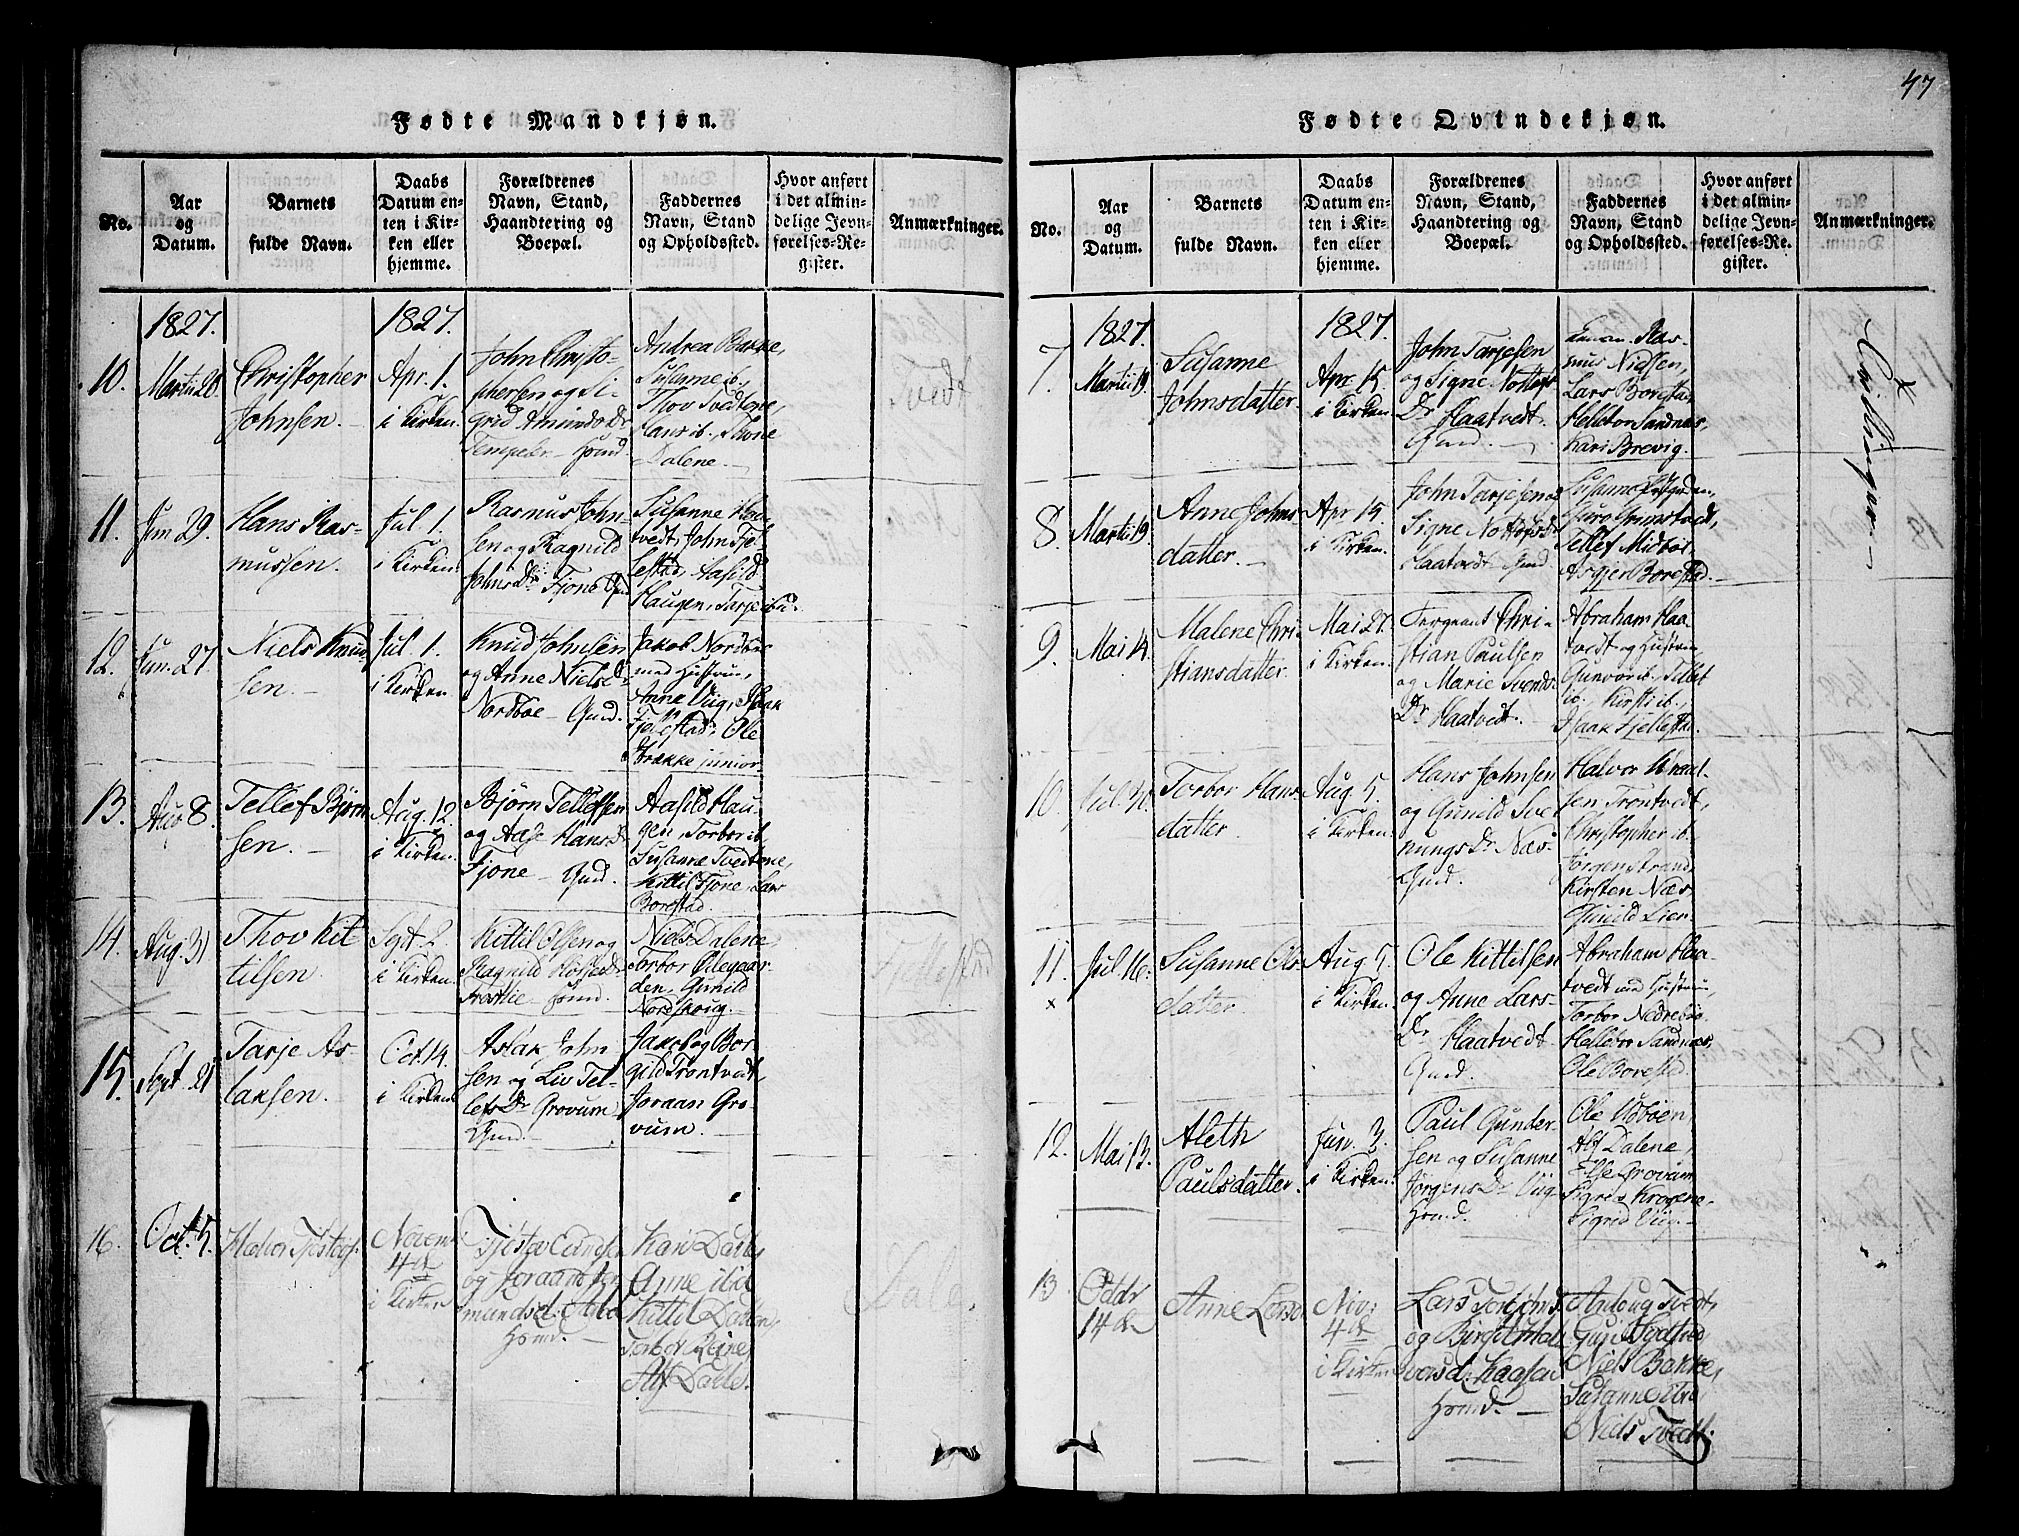 47
Fødte Mandkjøn.
No.
Aar
og
Datum.
Barnets
fulde Navn.
Daabs
Datum en-
ten i Kir-
ken eller
hjemme.
Forældrenes
Navn, Stand,
Haandtering og
Boepæl.
Faddernes
Navn, Stand
og Opholdssted.
Hvor anført
i det almin-
delige Jevn-
førelses-Re-
gister.
Anmærkninger.
1827.
1827.
10.
Martii 20
Christopher
Johnsen.
Apr. 1.
i Kirken.
John Christo-
phersen og Si-
grid Amunds Dr
Tempelen
Andrea Bakke,
Susanne ib.
Thov Tvedtene,
Hans ib. Thone
Dalene.
Tvedt
11.
Jun 29.
Hans Ras-
mussen.
Jul 1.
i Kirken.
Rasmus John-
sen og Ragnild
Johns Dr. Fjone
Susanne Haa-
tvedt, John Fjel-
lestad, Aasild
Haugen, Tarje ib.
12.
Jun. 27
Niels Knud-
sen.
Jul. 1.
i Kirken.
Knud Johnsen
og Anne Niels D.
Nordbøe Gmd.
Jakob Nordbøe
med Hustrue,
Anne Viig, Isaak
Fjellestad, Ole
Strakke junior
13.
Aug 8.
Tellef Bjørn
sen.
Aug. 12
i Kirken.
Bjørn Tellefsen
og Aase Hans Dr
Fjone Gmd.
Aasild Hau-
gen, Torbor ib.
Susanne Tvedtene,
Kittil Fjone, Lars
Borestad.
14.
Aug. 31
Thov Kit
tilsen
Sept. 2.
i Kirken
Kittil Olsen og
Ragnild
Niels Dalene,
Torbor Ødegaar-
den, Gunild
Nordskoug.
15.
Sept. 21
Tarje As-
laksen.
Oct. 14.
i Kirken
Aslak John
sen og Liv Tel-
lefs Dr Grovum
Gmd.
Jakob og Bor-
gild Trontvedt,
Joraan Gro-
vum.
16.
Oct. 5.
Halvor
Novem
4de
i Kirken
og Joraand
mundsd.
Kari Dale,
Anne ibid
Kittil Dalen,
Torbor Leine,
Alf Dale.
Dale.
Fødte Qvindekjøn.
No.
Aar
og
Datum.
Barnets
fulde Navn.
Daabs
Datum en-
ten i Kir-
ken eller
hjemme.
Forældrenes
Navn, Stand,
Haandtering og
Boepæl.
Faddernes
Navn, Stand
og Opholdssted.
Hvor anført
i det almin-
delige Jevn-
førelses-Re-
gister.
Anmærkninger.
1827.
1827.
7.
Martii 19.
Susanne
Johnsdatter.
Apr 15.
i Kirken.
John Tarjesen
og Signe Nottofs
Dr Haatvedt.
Gmd.
Ras-
mus Nielsen,
Lars Borestad,
Hellebor Sandnæs,
Kari Brevig.
Tvillinger.
8.
Martii 19.
Anne Johns
datter.
Apr 15.
i Kirken.
John Tarjesen og
Signe Nottofs Dr
Haatvedt Gmd
Susanne
Guro Grimstvedt,
Tellef Midbøe
Asgjer Borestad.
9.
Mai 14.
Malene Chri-
stiansdatter.
Mai 27.
i Kirken.
Sergeant Chri-
stian Paulsen
og Marie Svends
Dr Haatvedt.
Abraham Haa-
tvedt og Hustru,
Gunvor ib., Tellef
ib. Kirsti ib.,
Isaak Fjellestad.
10.
Jul.
Torbor Hans-
datter.
Aug 5.
i Kirken.
Hans Johnsen
og Gunild Sve
nungs Dr Næs-
Gmd.
Halvor
sen Trontvedt,
Christopher ib.
Jørgen Strand
Kirsten Næs
Gunild Lien
11.
×
Jul 16.
Susanne Ols-
datter.
Aug 5.
i Kirken.
Ole Kittilsen
og Anne Lars-
Dr Haatvedt
Gmd.
Abraham Haa-
tvedt med Hustrue,
Torbor Nedrebøe
Hellebor Sandnæs,
Ole Borestad
12.
Mai 13.
Aleth
Paulsdatter.
Jun. 3.
i Kirken.
Paul Gunder-
sen og Susanne
Jørgens Dr Viig
Ole Udbøen
Alf Dalene,
Else Grovum
Sigrid Viig.
13
14de
Anne Larsd
Nov:
4de
i Kirken
Lars
og
Tvedt,
Niels Bakke,
Susanne
Niels Tvedt.